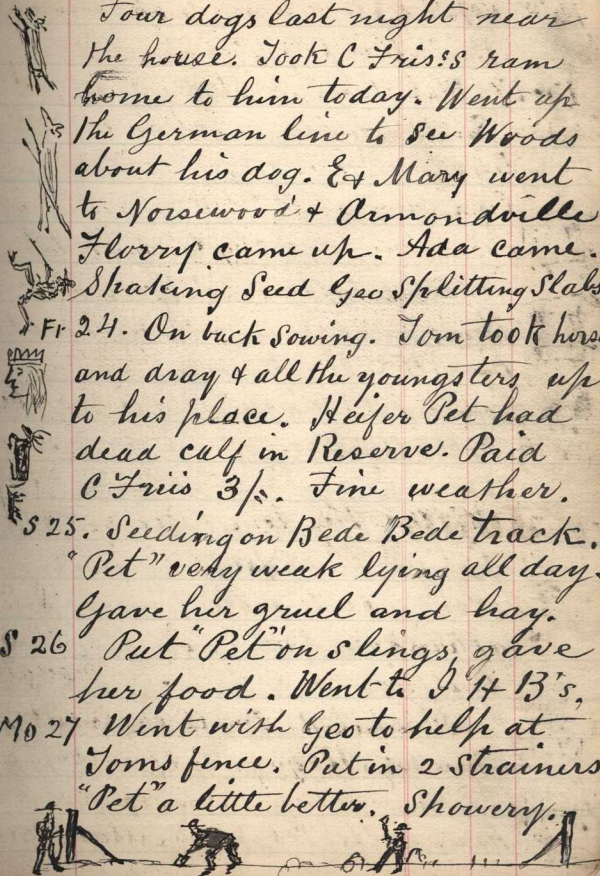 Four dogs last night near
the house. Took C Friis's ram
home to him today. Went up
the German line to see Woods
about his dog. E & Mary went
to Norsewood & Ormondville
Florry came up. Ada came.
Shaking Seed Geo Splitting Slabs
Fr 24. On back Sowing. Tom took horse
and dray & all the youngsters up
to his place. Heifer Pet had
dead calf in Reserve. Paid
C Friis 3/-. Fine weather.
S 25. Seeding on Bede Bede track.
"Pet" very weak lying all day.
Gave her gruel and hay.
S 26 Put "Pet" on slings, gave
her food. Went to I H B's.
Mo 27 Went with Geo to help at
Toms fence. Put in 2 Strainers
"Pet" a little better. Showery.